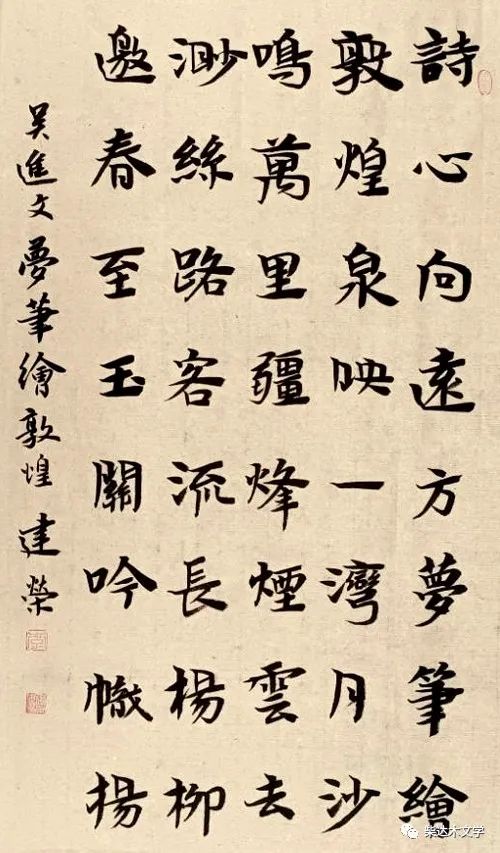 詩心向遠方夢筆繪
敦煌泉映一灣月沙
鳴萬里疆烽煙雲去
渺絲路客流長楊柳
邀春至玉關吟幟揚
吴進文夢筆繪敦煌 建榮
柴达木文学